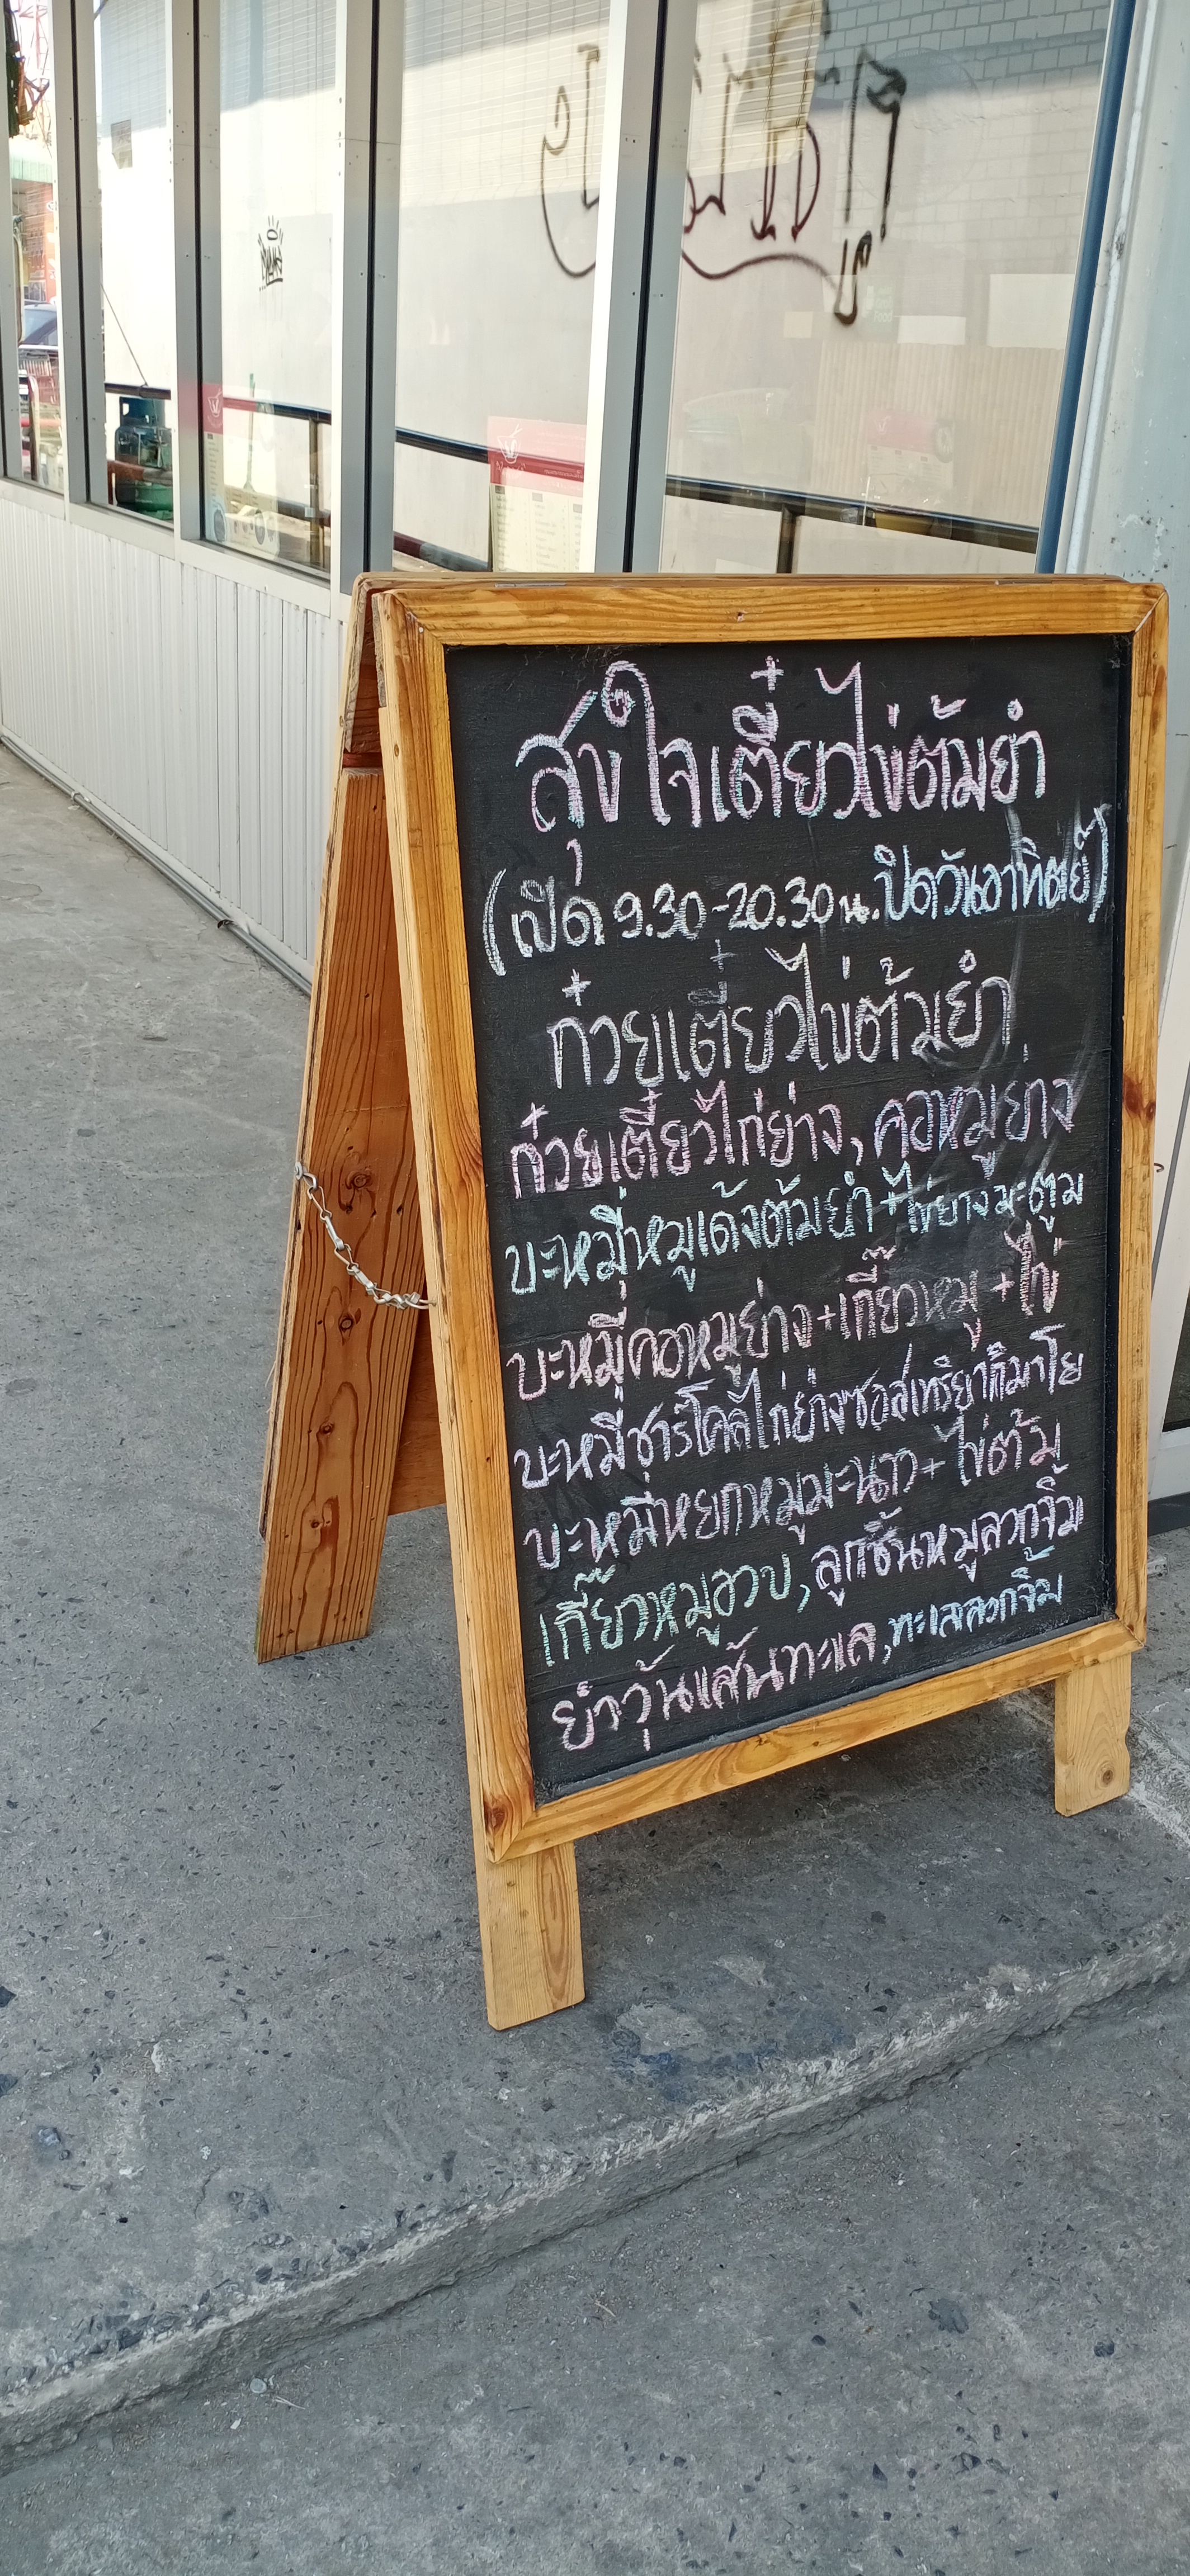 สุขใจเตี๋ยวไข่ต้มยำ
(เปิด 9.30-20.30 น. ปิดวันอาทิตย์)
ก๋วยเตี๋ยวไข่ต้มยำ
ก๋วยเตี๋ยวไก่ย่าง, คอหมูย่าง
บะหมี่หมูเด้งต้มยำ+ไข่ยางมะตูม
บะหมี่คอหมูย่าง+เกี๊ยวหมู+ไข่
บะหมี่ชาร์โคลไก่ย่างซอสเทริยากิมาโย
บะหมี่หยกหมูมะนาว+ไข่ต้ม
เกี๊ยวหมูอวบ, ลูกชิ้นหมูลวกจิ้ม
ยำวุ้นเส้นทะเล, ทะเลลวกจิ้ม